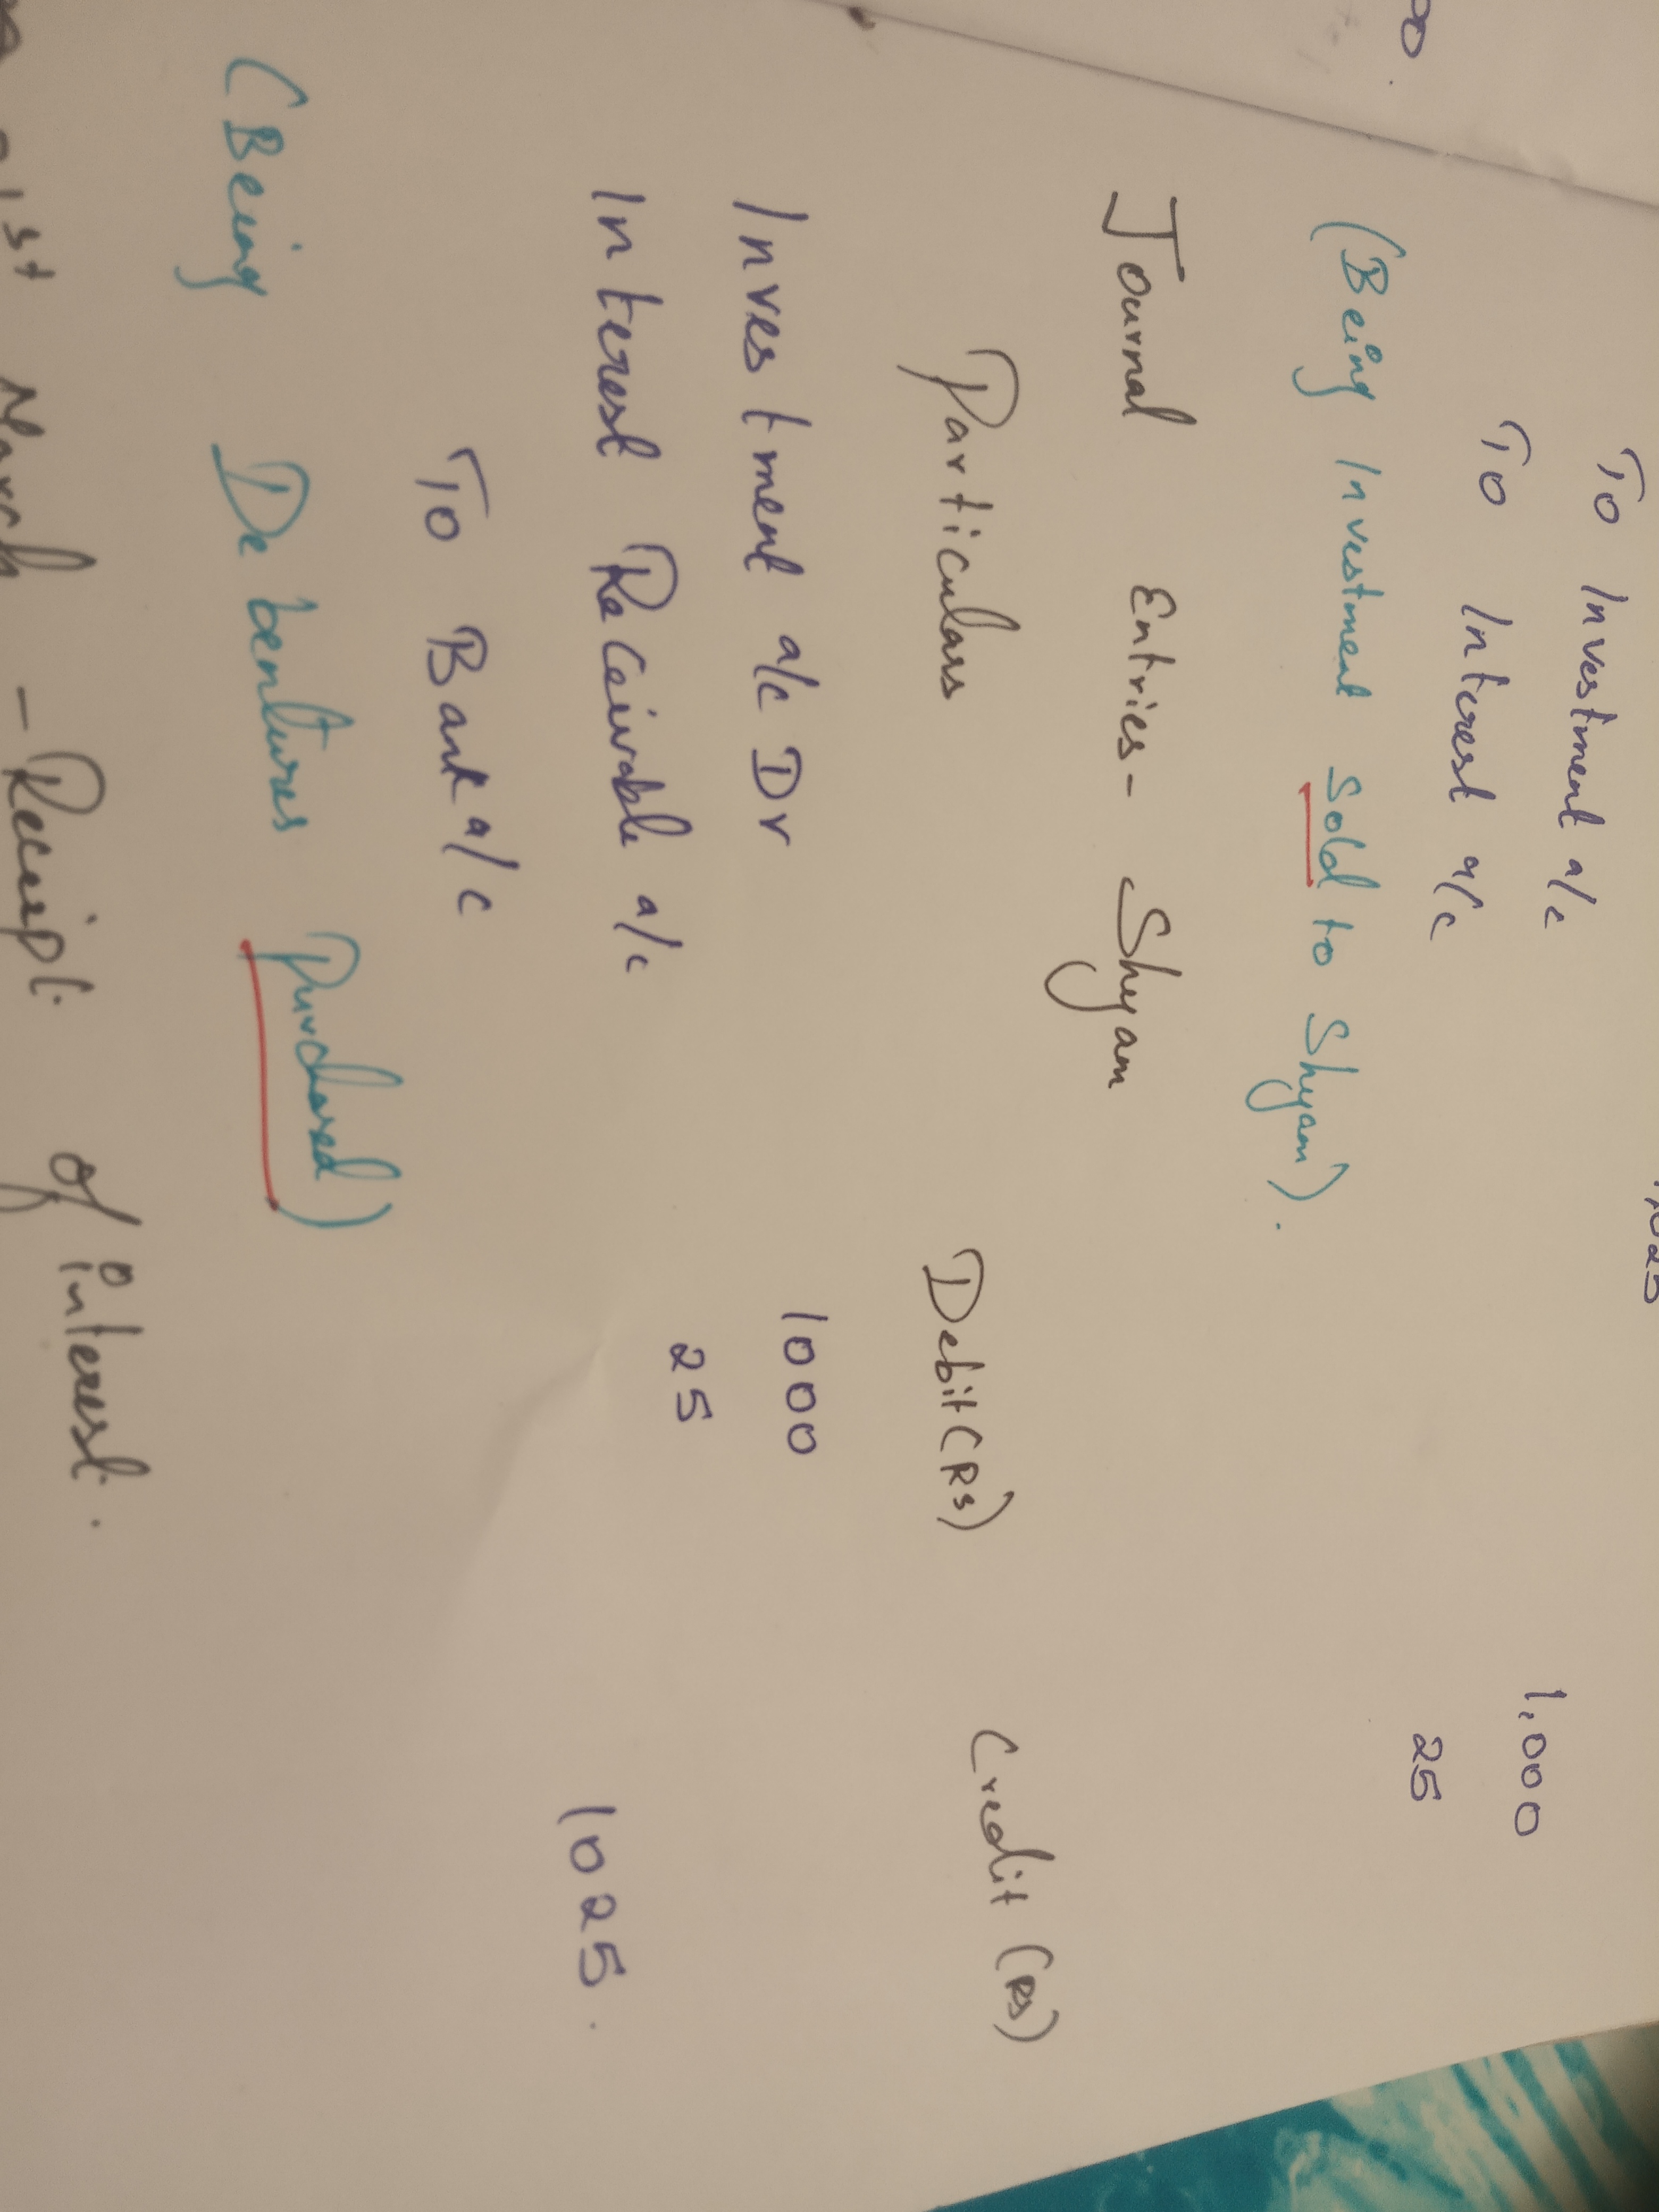 1,025
To Investment a/c 1,000
To Interest a/c 25
(Being Investment Sold to Shyam).
Journal Entries - Shyam
Particulars Debit (Rs) Credit (Rs)
Investment a/c Dr 1000
Interest Receivable a/c 25
To Bank a/c 1025.
(Being Debentures Purchased)
31st March - Receipt of interest.